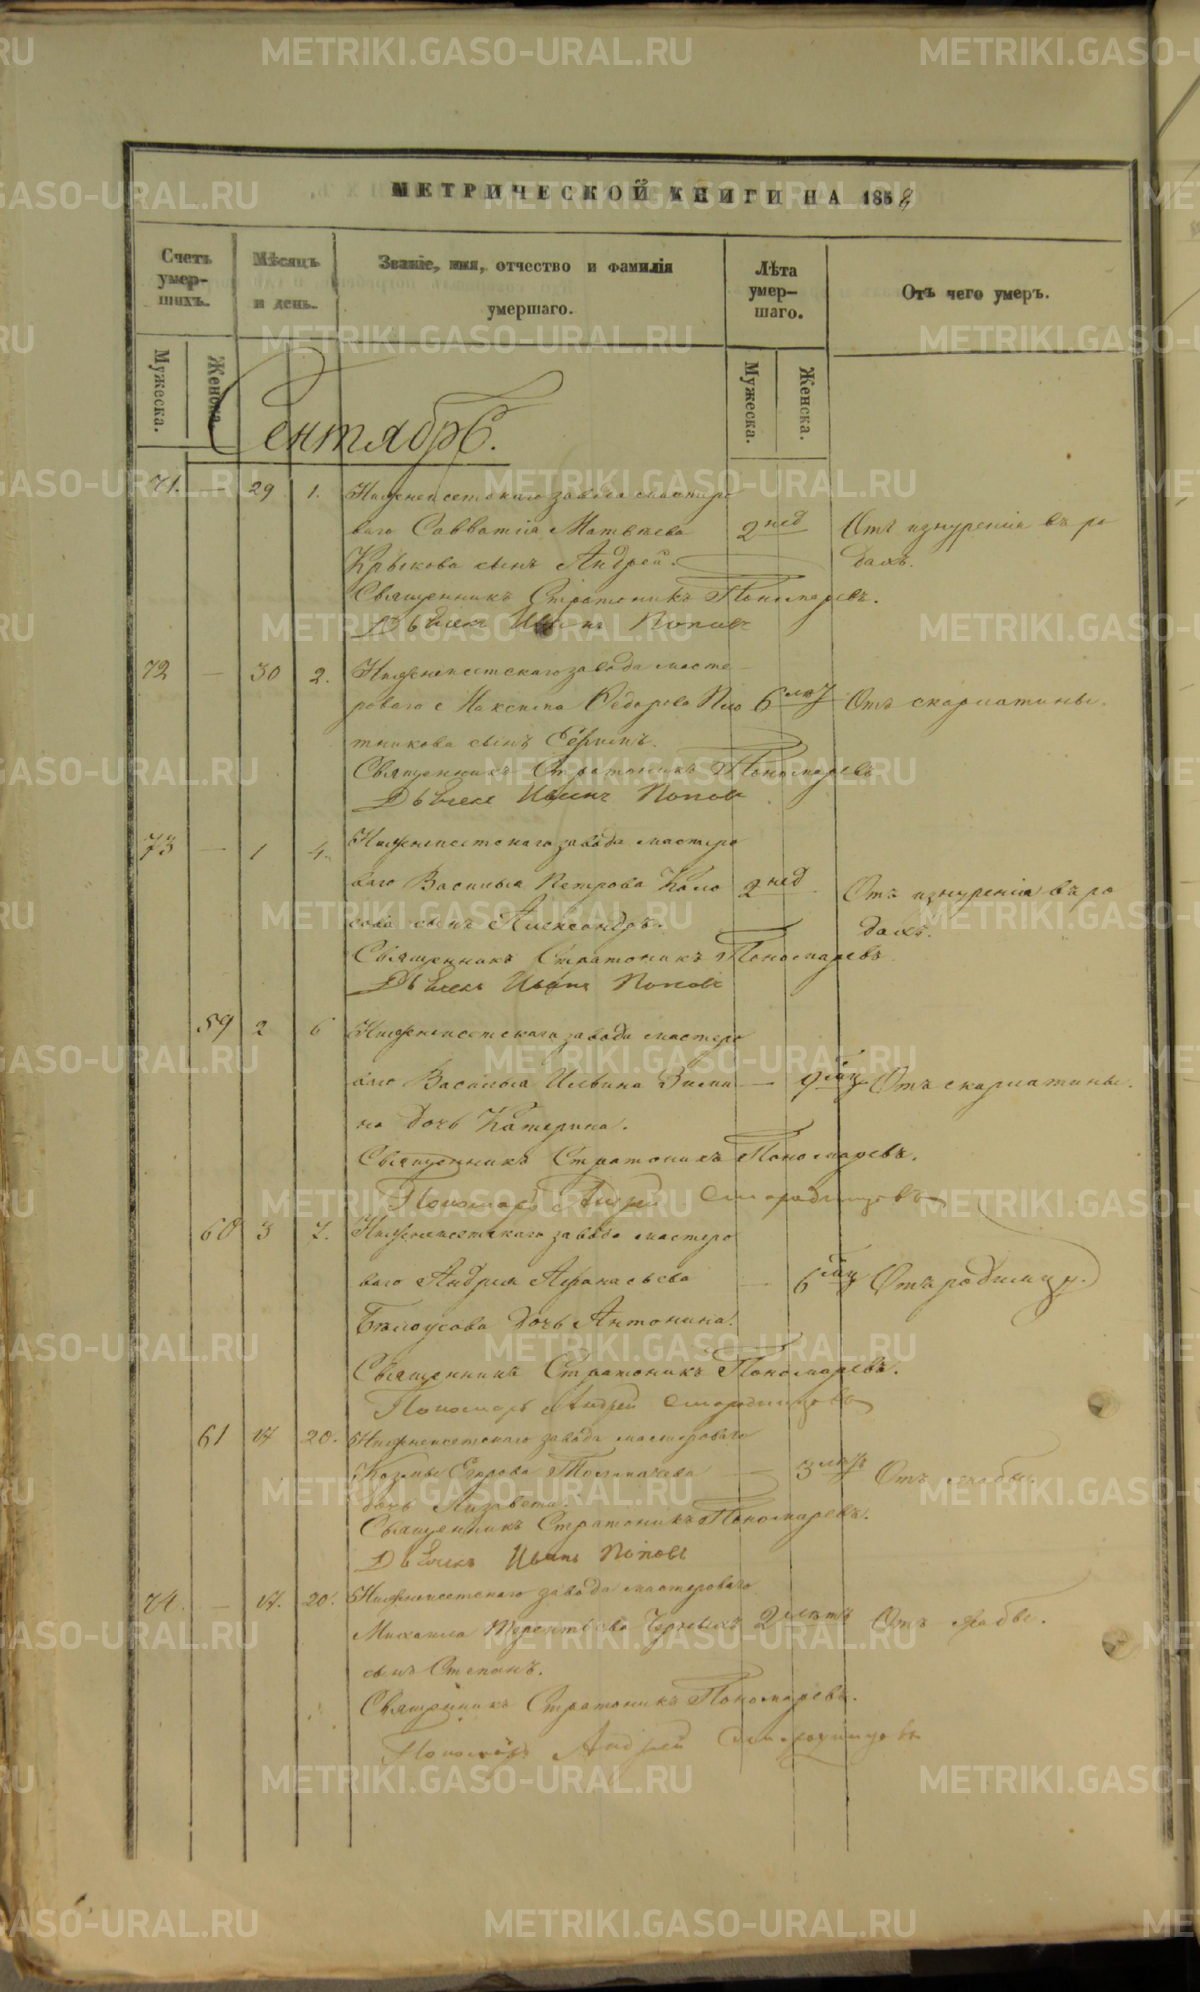 МЕТРИЧЕСКОЙ КНИГИ НА 1858
Счетъ умер-шихъ.
Мѣсяцъ и день.
Званіе, имя, отчество и фамилія
умершаго.
Лѣта умер-шаго.
Отъ чего умеръ.
Мужеска.
Женска.
Мужеска.
Женска.
Сентябрь.
71. — 29 1. Нижнеисетскаго завода мастеро
ваго Савватія Матвѣева 2 нед Отъ изнуренія въ ро
Крысова сынъ Андрей. дахъ.
Священникъ Стратоникъ Пономаревъ.
Дьячекъ Иванъ Поповъ
72 — 30 2. Нижнеисетскаго завода масте
роваго Максима Ѳедорова Пло 6 Отъ скарлатины.
тникова сынъ
Священникъ Стратоникъ Пономаревъ
Дьячекъ Иванъ Поповъ
73 — 1 4. Нижнеисетскаго завода мастеро
ваго Василья Петрова Коло 2 нед Отъ изнуренія въ ро
сова сынъ Александръ. дахъ.
Священникъ Стратоникъ Пономаревъ
Дьячекъ Иванъ Поповъ
59 2 6 Нижнеисетскаго завода мастеро
ваго Василья Ильина Зими — 9 Отъ скарлатины.
на дочь Катерина.
Священникъ Стратоникъ Пономаревъ.
Пономарь Андрей Смородинцовъ
60 3 7. Нижнеисетскаго завода мастеро
ваго Андрея Аѳанасьева — 6 Отъ родимцу.
Бѣлоусова дочь Антонина.
Священникъ Стратоникъ Пономаревъ.
Пономарь Андрей Смородинцовъ
61 17 20. Нижнеисетскаго завода мастероваго
Козмы Егорова Толмачева — 3 Отъ жабы.
дочь Лизавета.
Священникъ Стратоникъ Пономаревъ.
Дьячекъ Иванъ Поповъ
74. — 17. 20. Нижнеисетскаго завода мастероваго
Михаила Терентьева Черныхъ 2 лѣтъ Отъ жабы.
сынъ Степанъ.
Священникъ Стратоникъ Пономаревъ.
Пономарь Андрей Смородинцовъ
METRIKI.GASO-URAL.RU